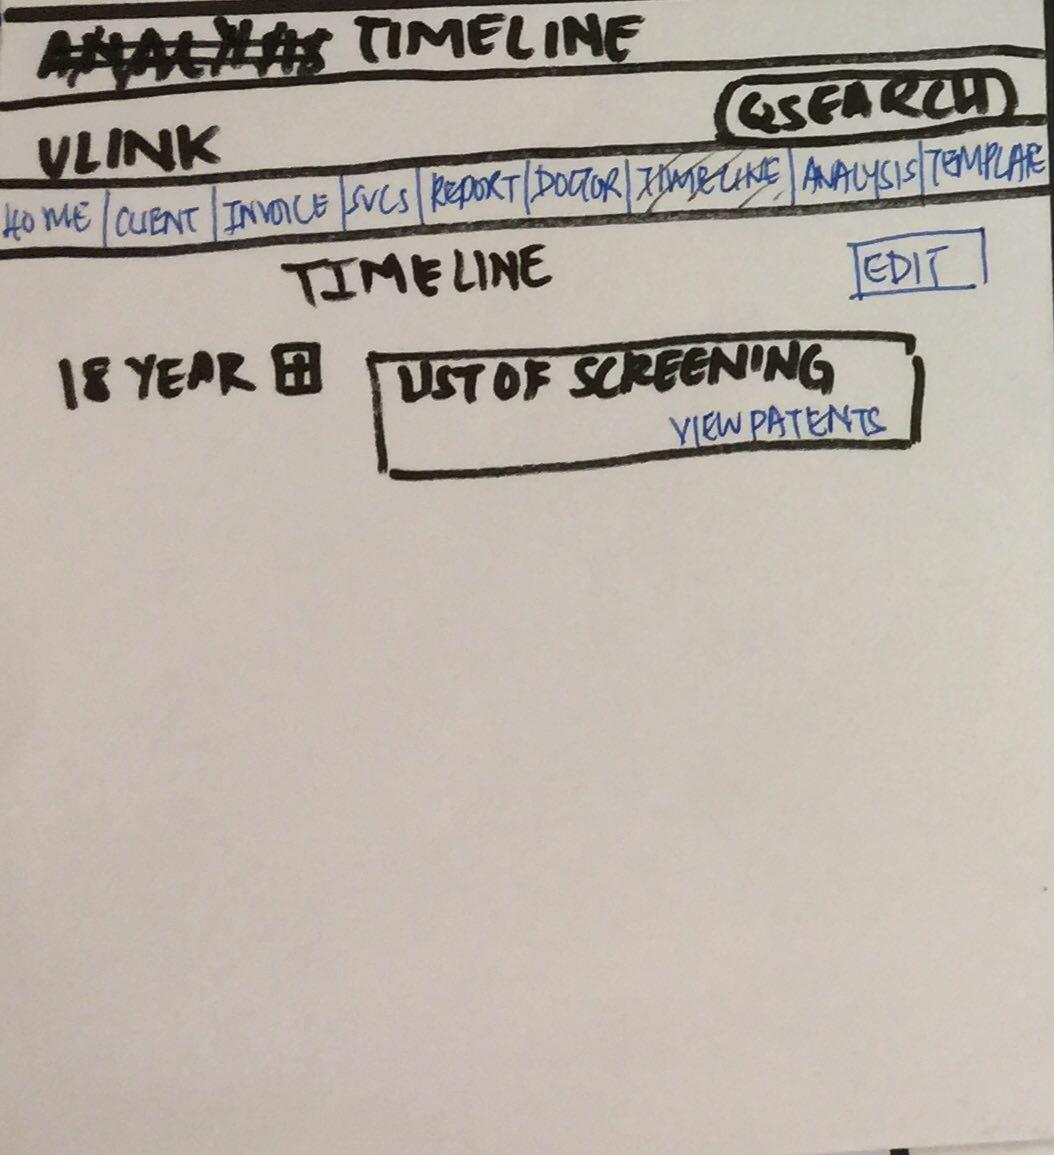 TIMELINE
QSEARCH
VLINK
HOME CLIENT INVOICE SVCS REPORT DOCTOR TIMELINE ANALYSIS TEMPLATE
TIMELINE EDIT
18 YEAR + LIST OF SCREENING
VIEW PATENTS